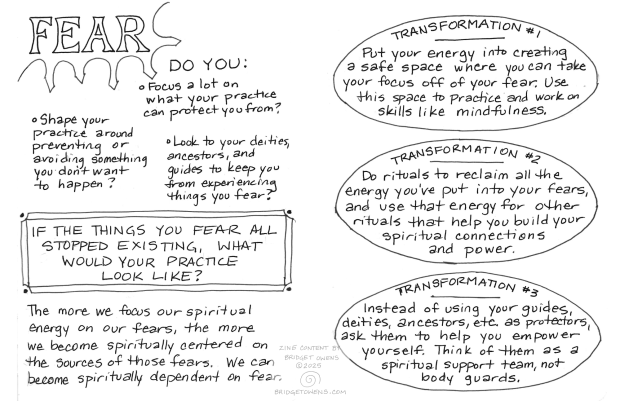 FEAR
DO YOU:
Focus a lot on
what your practice
can protect you from?
Shape your
practice around
preventing or
avoiding something
you don't want
to happen?
Look to your deities,
ancestors, and
guides to keep you
from experiencing
things you fear?
IF THE THINGS YOU FEAR ALL
STOPPED EXISTING, WHAT
WOULD YOUR PRACTICE
LOOK LIKE?
The more we focus our spiritual
energy on our fears, the more
we become spiritually centered on
the sources of those fears. We can
become spiritually dependent on fear.
ZINE CONTENT BY
BRIDGET OWENS
©2025
BRIDGETOWENS.COM
TRANSFORMATION #1
Put your energy into creating
a safe space where you can take
your focus off of your fear. Use
this space to practice and work on
skills like mindfulness.
TRANSFORMATION #2
Do rituals to reclaim all the
energy you've put into your fears,
and use that energy for other
rituals that help you build your
spiritual connections
and power.
TRANSFORMATION #3
Instead of using your guides,
deities, ancestors, etc. as protectors,
ask them to help you empower
yourself. Think of them as a
spiritual support team, not
body guards.